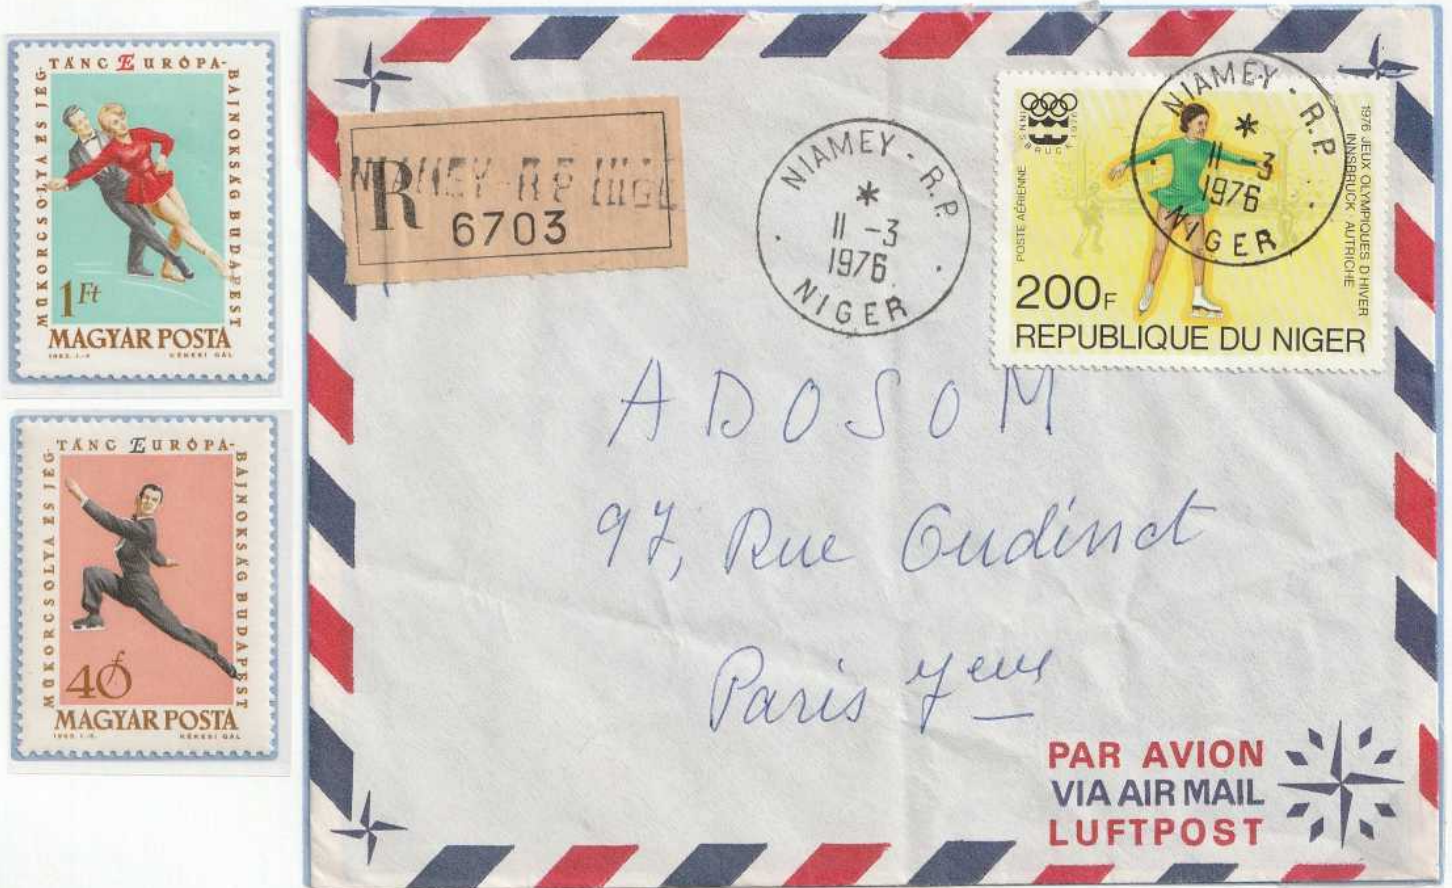 MŰKORCSOLYA ÉS JÉG-
TÁNC EURÓPA-
BAJNOKSÁG BUDAPEST
1 Ft
MAGYAR POSTA
KÉKESI GÁL
MŰKORCSOLYA ÉS JÉG-
TÁNC EURÓPA-
BAJNOKSÁG BUDAPEST
40 f
MAGYAR POSTA
KÉKESI GÁL
R
NIAMEY-RP
6703
NIAMEY - R.P.
11 -3
1976
NIGER
INNSBRUCK 1976
POSTE AÉRIENNE
1976 JEUX OLYMPIQUES D'HIVER
INNSBRUCK · AUTRICHE
200F
REPUBLIQUE DU NIGER
NIAMEY - R.P.
11 -3
1976
NIGER
ADOSOM
97, Rue Oudinot
Paris 7eme
PAR AVION
VIA AIR MAIL
LUFTPOST